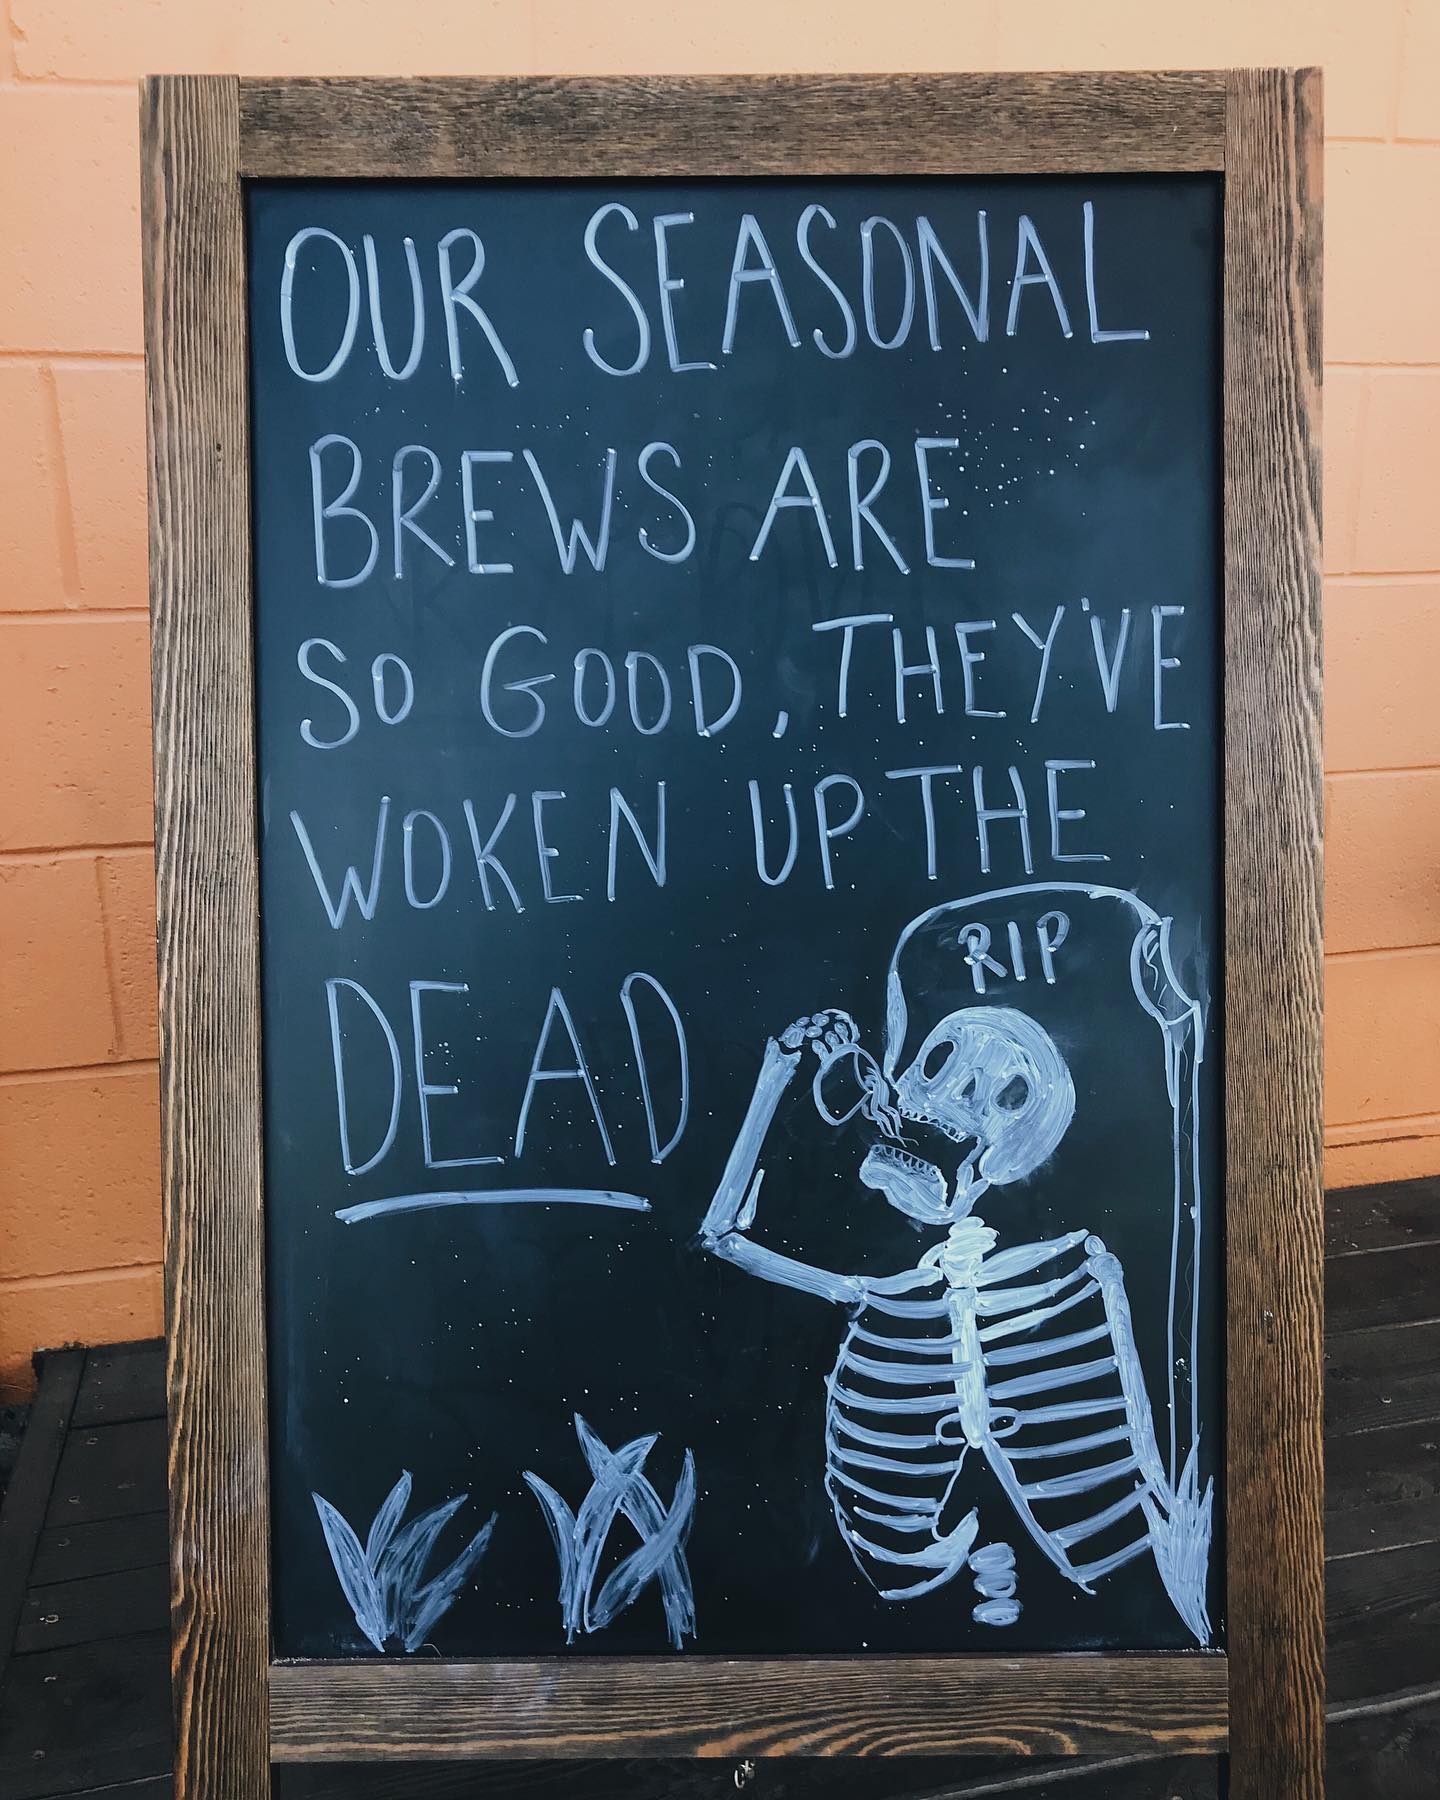 OUR SEASONAL
BREWS ARE
SO GOOD, THEY'VE
WOKEN UP THE
DEAD
RIP